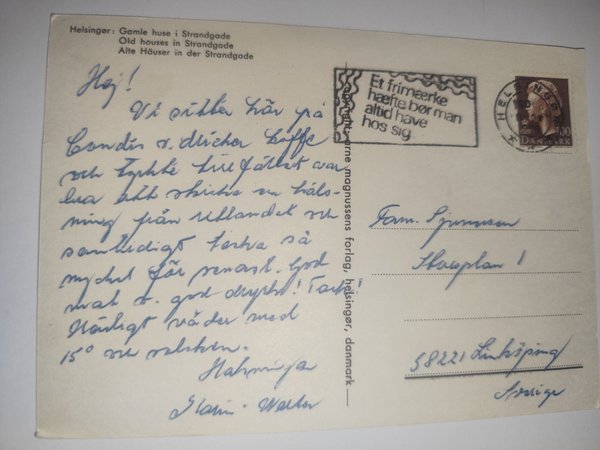 Helsingør: Gamle huse i Strandgade
Old houses in Strandgade
Alte Häuser in der Strandgade
Hej!
Vi sitter här på
och dricker kaffe
och tyckte tillfället var
bra att skriva en häls-
ning från utlandet och
samtidigt tacka så
mycket för senast. God
mat o. god dryck! Tack!
Härligt väder med
15° och solsken.
Hälsningar
Karin - Walter
Et frimærke
hæfte bør man
altid have
hos sig
HELSINGØR
100
DANMARK
arne magnussens forlag, helsingør, danmark
Fam.
1
58221 Linköping
Sverige